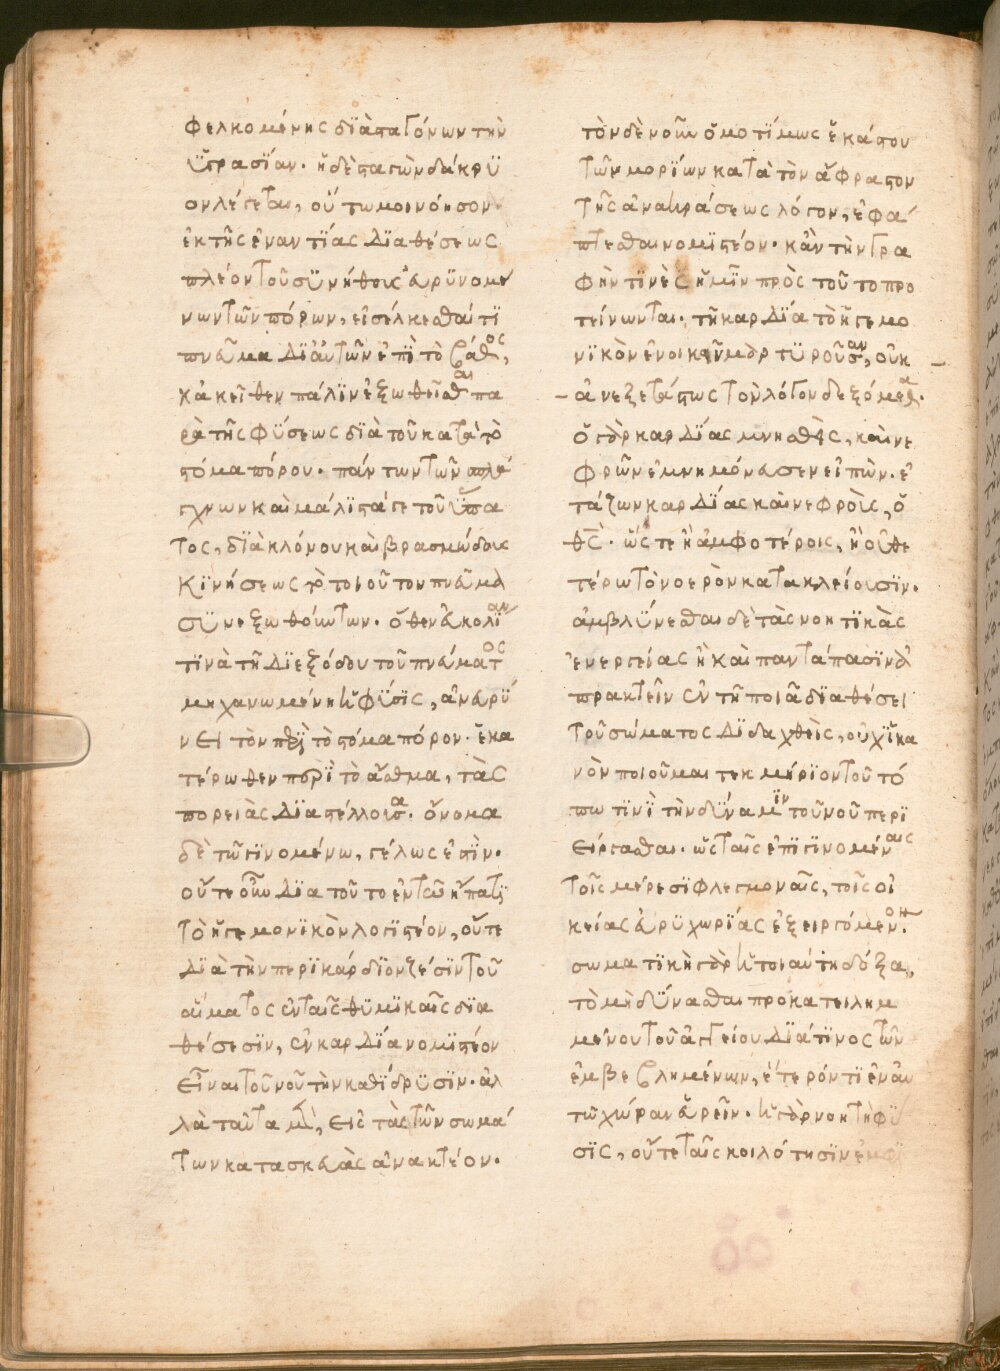 φελκομένης διὰ σταγόνων τὴν
ὑγρασίαν. ἡ δὲ σταγὼν δάκρυ
ον λέγεται, οὕτω μοι νόησον
ἐκ τῆς ἐναντίας διαθέσεως
πλέον τοῦ συνήθους εὐρυνομέ
νων τῶν πόρων, εἰσέλκεσθαί τι
πνεῦμα δι' αὐτῶν ἐπὶ τὸ βάθος,
κἀκεῖθεν πάλιν ἐξωθεῖσθαι πα
ρὰ τῆς φύσεως διὰ τοῦ κατὰ τὸ
στόμα πόρου. πάντων τῶν σπλά
γχνων καὶ μάλιστά γε τοῦ ἥπα
τος, διὰ κλόνου καὶ βρασμώδους
κινήσεως τὸ τοιοῦτον πνεῦμα
συνεξωθούντων. ὅθεν εὐκολίαν
τινὰ τῇ διεξόδου τοῦ πνεύματος
μηχανωμένη ἡ φύσις, ἀνευρύ
νει τὸν περὶ τὸ στόμα πόρον. ἑκα
τέρωθεν περὶ τὸ ἆσθμα, τὰς
πορειὰς διαστέλλουσα. ὄνομα
δὲ τῶ γινομένω, γέλως ἐστίν.
οὔτε οὖν δια τοῦτο ἐν τῶ ἥπατι
τὸ ἡγεμονικὸν λογιστέον, οὔτε
διὰ τὴν περικάρδιον ζέσιν τοῦ
αἵματος ἐν ταῖς θυμικαῖς δια
θέσεσιν, ἐν καρδία νομιστέον
εἶναι τοῦ νοῦ τὴν καθίδρυσιν. ἀλ
λὰ ταῦτα μὲν, εἰς τὰς τῶν σωμά
των κατασκευὰς ἀνακτέον.
τὸν δὲ νοῦν ὁμοτίμως ἑκάστου
τῶν μορίων κατὰ τὸν ἄφραστον
τῆς ἀνακράσεως λόγον, ἐφά
πτεσθαι νομιστέον. κἂν τὴν γρα
φήν τινὲς ἡμῖν πρὸς τοῦτο προ
τείνωνται, τῆ καρδία τὸ ἡγεμο
νικὸν ἐνοικεῖν μαρτυροῦσαν, οὐκ
ἀνεξετάστως τὸν λόγον δεξόμεθα.
ὁ γὰρ καρδίας μνησθεὶς, καὶ νε
φρῶν ἐμνημόνευσεν εἰπὼν. ἐ
τάζων καρδίας καὶ νεφροὺς, ὁ
θς. ὥστε ἢ ἀμφοτέροις, ἢ οὐθε
τέρω τὸ νοερὸν κατακλείουσιν.
ἀμβλύνεσθαι δὲ τὰς νοητικὰς
ἐνεργείας ἢ καὶ πανταπάσιν ἀ
πρακτεῖν ἐν τῆ ποιᾶ διαθέσει
τοῦ σώματος διδαχθεὶς, οὐχ ἱκα
νὸν ποιοῦμαι τεκμήριον τοῦ τό
πω τινὶ τὴν δύναμιν τοῦ νοῦ περι
είργεσθαι. ὡς ταῖς ἐπιγινομέναις
τοῖς μέρεσι φλεγμοναῖς, τοῖς οἰ
κείας εὐρυχωρίας ἐξειργόμενον.
σωματικὴ γὰρ ἡ τοιαύτη δόξα,
τὸ μὴ δύνασθαι προκατειλημ
μένου τοῦ ἀγγείου διά τινος τῶν
ἐμβεβλημένων, ἕτερόν τι ἐν αὐ
τῶ χώραν εὑρεῖν. ἡ γὰρ νοητὴ φύ
σις, οὔτε ταῖς κοιλότησιν ἐμφι